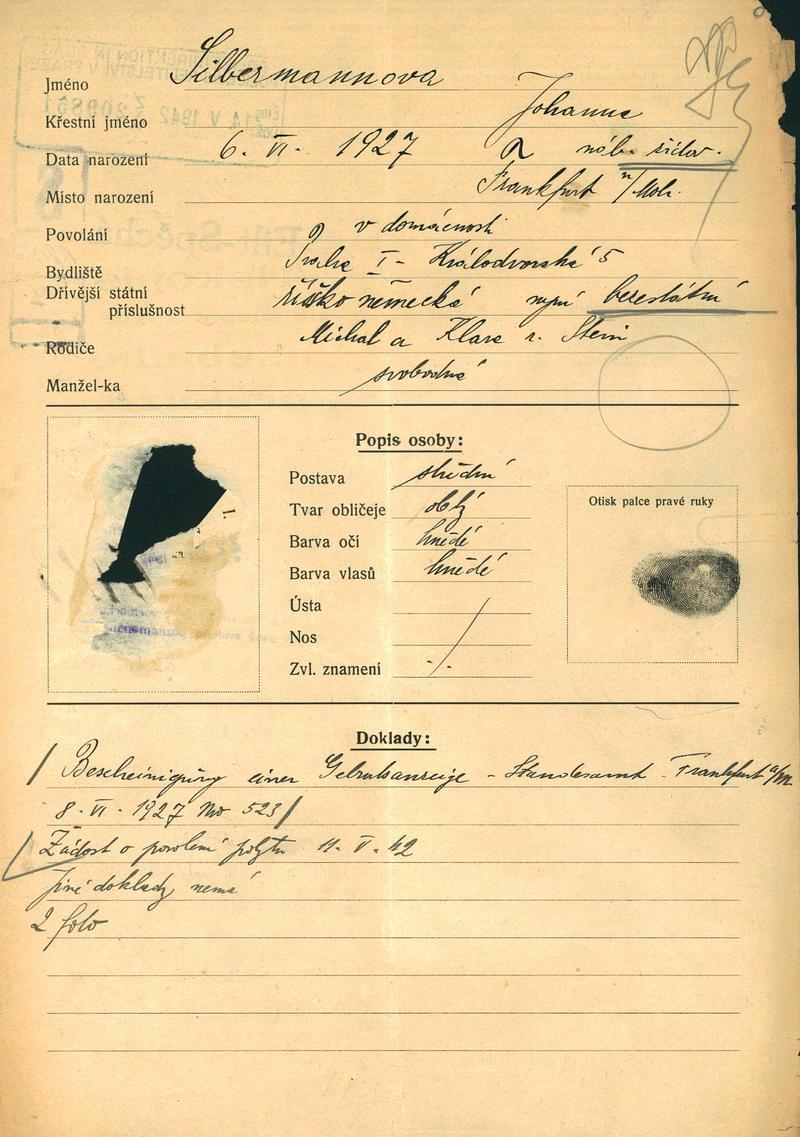 Jméno Silbermannova
Křestní jméno Johanna
Data narození 6. VI. 1927 náb. židov.
Místo narození Frankfurt n/Moh.
Povolání v domácnosti
Bydliště Praha I - Královdvorská 5
Dřívější státní
příslušnost říško německá nyní bezestátní
Rodiče Michal a Klara r. Stein
Manžel-ka svobodná
Popis osoby:
Postava střední
Tvar obličeje oblý
Barva očí hnědé
Barva vlasů hnědé
Ústa
Nos
Zvl. znamení ./.
Otisk palce pravé ruky
Doklady:
/ Bescheinigung einer Geburtsanzeige - Standesamt - Frankfurt a/M
8. VI. 1927 No 523 /
Žádost o povolení pobytu 11. V. 42
Jiné doklady nemá
2 foto